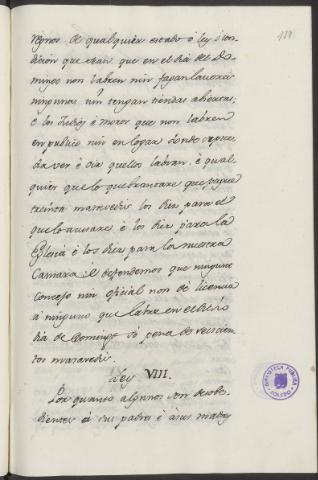 128
regnos de qualquier estado ó ley ó con-
dicion que sean que en el dia del Do-
mingo non labren nin fagan lavores
ningunas nin tengan tiendas abiertas;
é los Judios é moros que non labren
en publico nin en logar donde se pue-
da ver é oir que ellos labran. é qual-
quier que lo quebrantare que pague
treinta maravedis los diez para el
que lo acusare é los diez para la
Yglesia é los diez para la nuestra
Camara é defendemos que ningunt
concejo nin oficial non dé licencia
á ninguno que labre en el dicho
dia de Domingo só pena de seiscien-
tos maravedis.
Ley VIII.
Por quanto algunos son desobe-
dientes á sus padres é á sus madres
BIBLIOTECA PUBLICA
TOLEDO